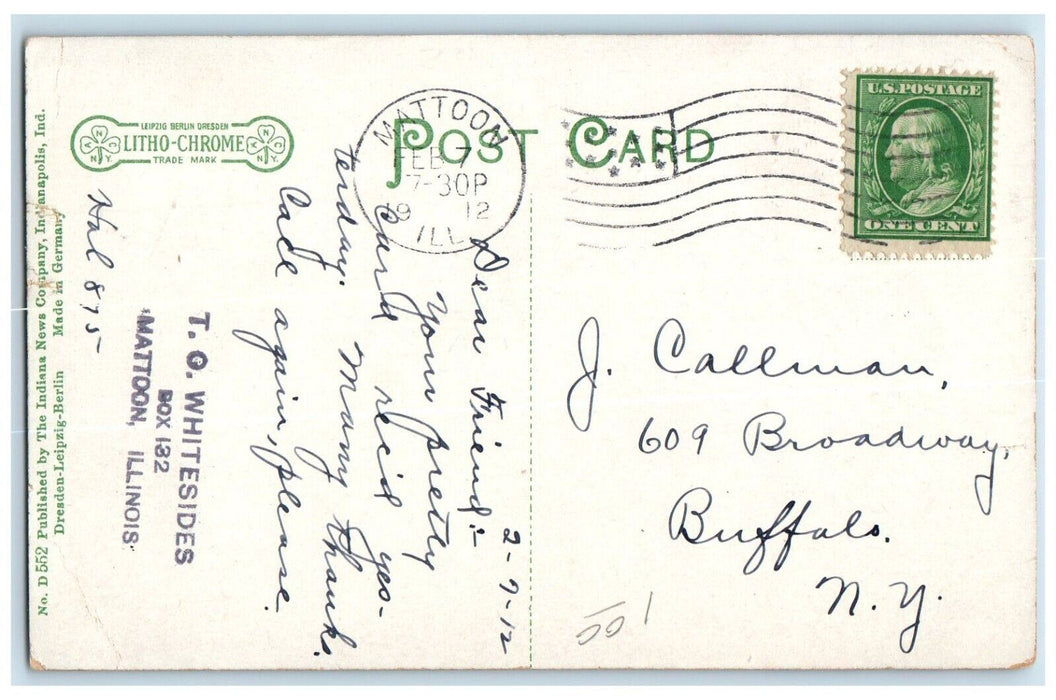 No. D 552 Published by The Indiana News Company, Indianapolis, Ind.
Dresden-Leipzig-Berlin Made in Germany
LEIPZIG BERLIN DRESDEN
LITHO-CHROME
TRADE MARK
POST CARD
MATTOON
FEB 7
7-30P
19 12
ILL
U.S. POSTAGE
ONE CENT
2-7-12
Dear Friend:-
Your pretty
card rec'd yes-
terday. Many thanks.
Call again, please.
T. O. WHITESIDES
BOX 132
MATTOON, ILLINOIS.
875-
J. Callman,
609 Broadway,
Buffalo.
N. Y.